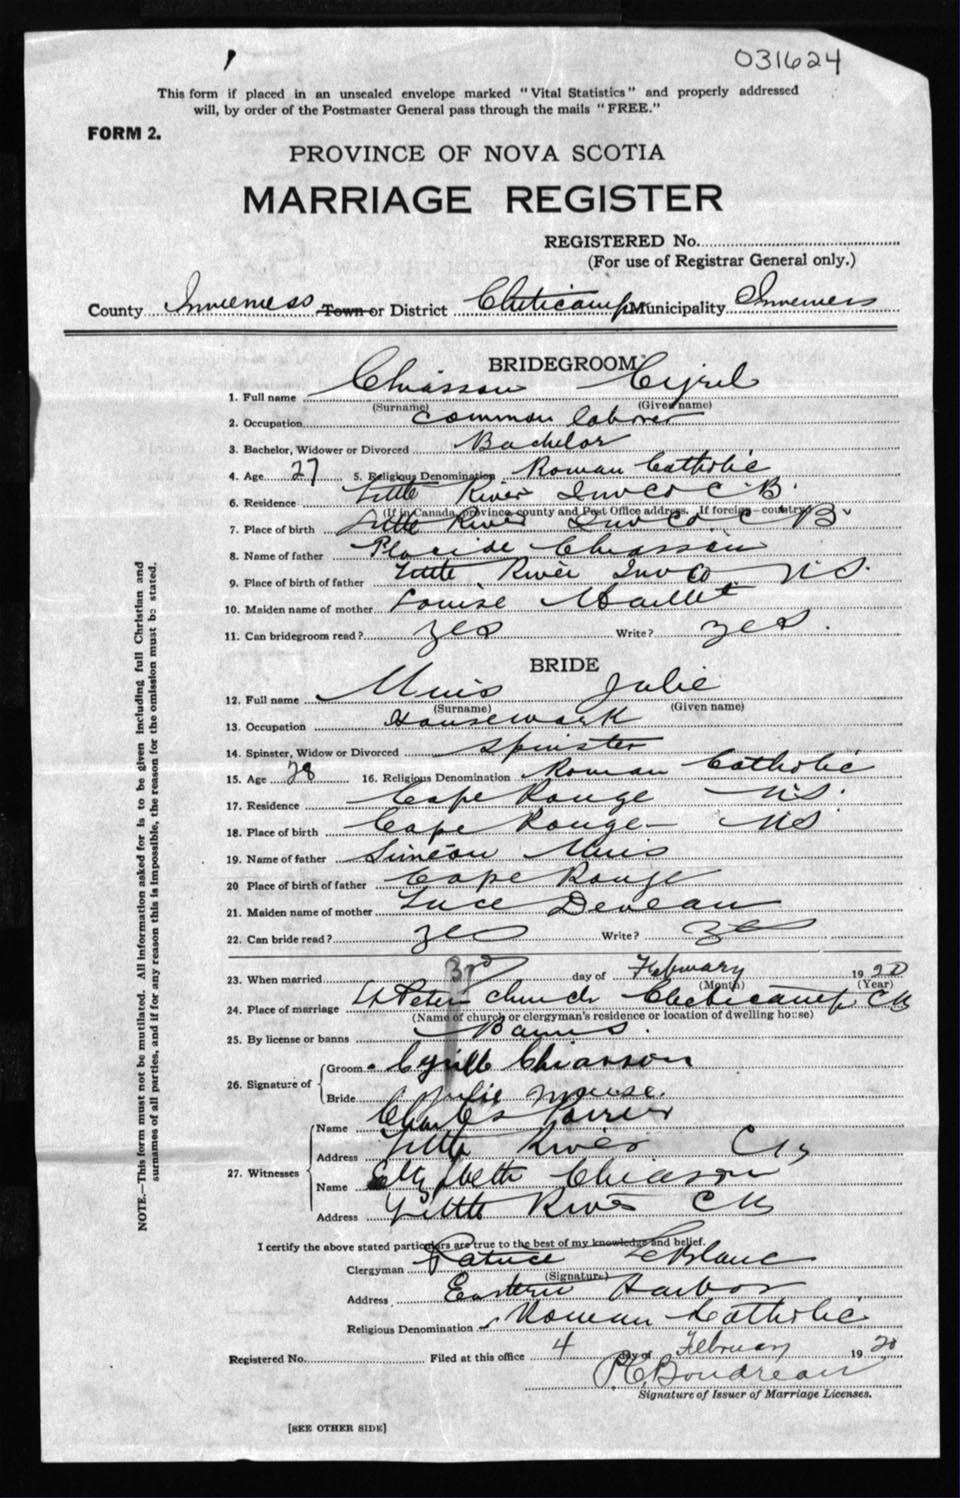 031624
This form if placed in an unsealed envelope marked "Vital Statistics" and properly addressed
will, by order of the Postmaster General pass through the mails "FREE."
FORM 2.
PROVINCE OF NOVA SCOTIA
MARRIAGE REGISTER
REGISTERED No.
(For use of Registrar General only.)
County Inverness Town or District Cheticamp Municipality Inverness
BRIDEGROOM
1. Full name Chiasson Cyril
(Surname) (Given name)
2. Occupation common laborer
3. Bachelor, Widower or Divorced Bachelor
4. Age 27 5. Religious Denomination Roman Catholic
6. Residence Little River Inv Co C B.
(If in Canada, province, county and Post Office address. If foreign—country)
7. Place of birth Little River Inv Co. C B
8. Name of father Placide Chiasson
9. Place of birth of father Little River Inv Co N S.
10. Maiden name of mother Louise Maillet
11. Can bridegroom read? yes Write? yes.
BRIDE
12. Full name Muis Julie
(Surname) (Given name)
13. Occupation Housework
14. Spinster, Widow or Divorced spinster
15. Age 28 16. Religious Denomination Roman Catholic
17. Residence Cape Rouge N S.
18. Place of birth Cape Rouge N S
19. Name of father Simeon Muis
20 Place of birth of father Cape Rouge
21. Maiden name of mother Luce Deveau
22. Can bride read? yes Write? yes
23. When married 3rd day of February 1920
(Month) (Year)
24. Place of marriage St Peters church Cheticamp
(Name of church or clergyman's residence or location of dwelling house)
25. By license or banns Banns.
26. Signature of Groom Cyrille Chiasson
Bride Julie Meuse.
27. Witnesses
Name Charles Poirier
Address Little River
Name Elizabeth Chiasson
Address Little River
I certify the above stated particulars are true to the best of my knowledge and belief.
Clergyman Patrice LeBlanc
(Signature)
Address Eastern Harbor
Religious Denomination Roman Catholic
Registered No. Filed at this office 4 day of February 1920
Boudreau
Signature of Issuer of Marriage Licenses.
[SEE OTHER SIDE]
NOTE.—This form must not be mutilated. All information asked for is to be given including full Christian and
surnames of all parties, and if for any reason this is impossible, the reason for the omission must be stated.